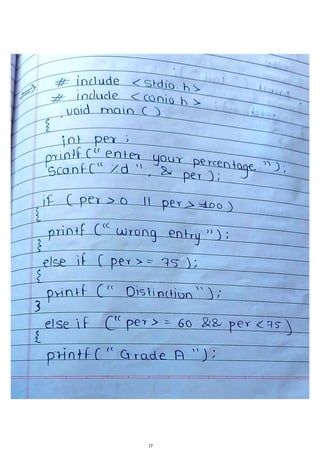 => # include <stdio.h>
# include <conio.h>
void main ( )
{
int per ;
printf (“ enter your percentage ”) ;
scanf (“ %d ”, & per ) ;
if ( per > 0 || per > 100 )
{
printf (“ wrong entry ”) ;
}
else if ( per > = 75 ) ;
{
printf (“ Distinction ”) ;
}
else if (“ per > = 60 && per < 75 )
{
printf (“ Grade A ”) ;
17